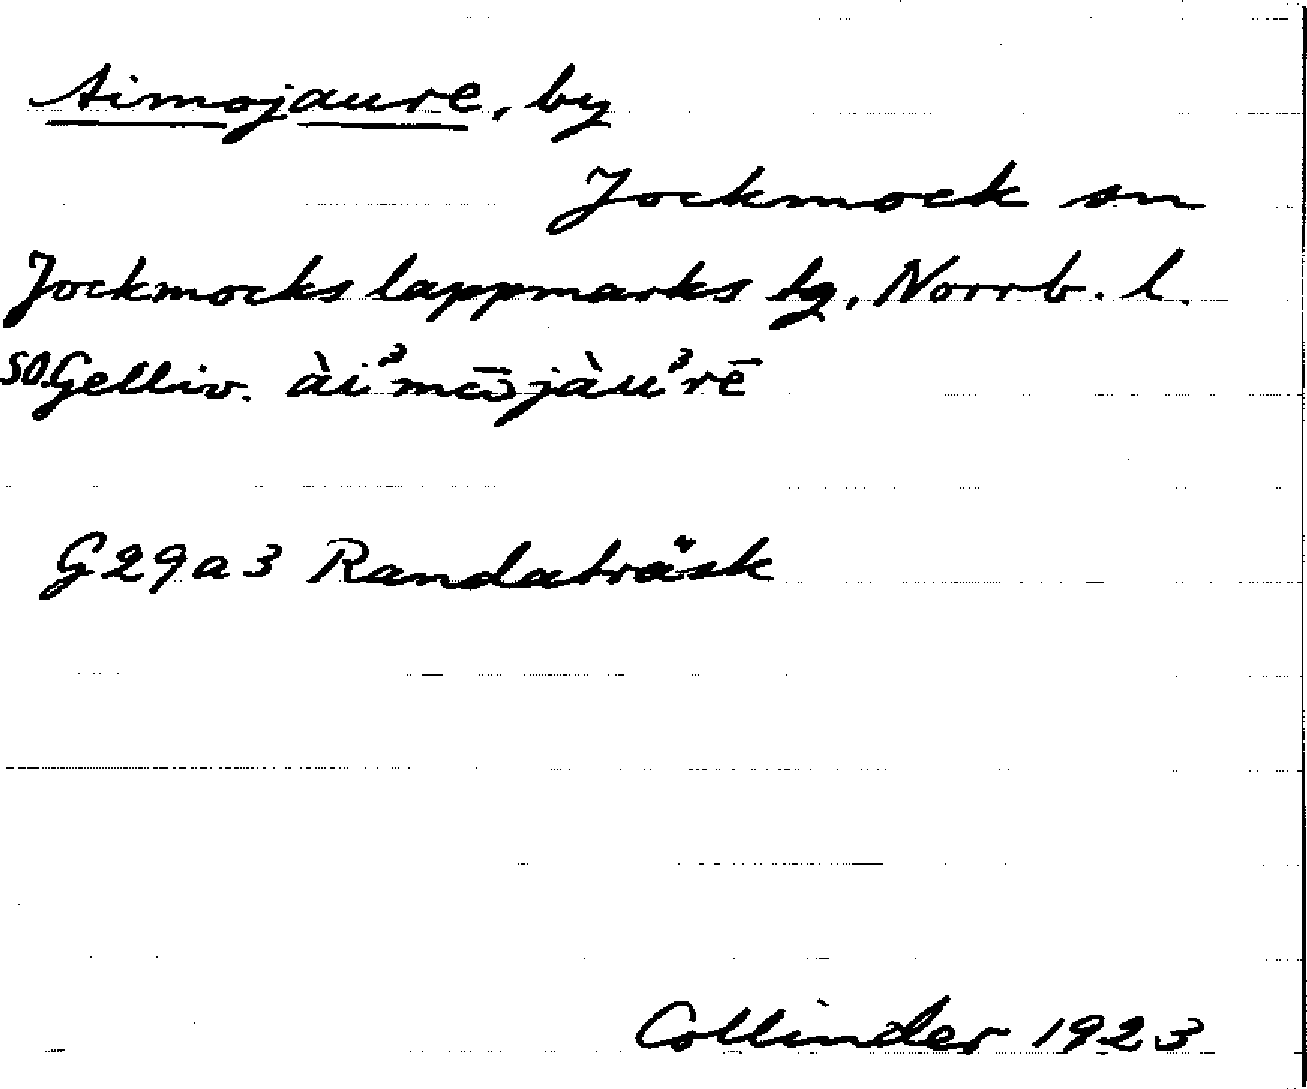 Aimojaure, by
Jockmock sn
Jockmocks lappmarks tg, Norrb. l.
SO. Gelliv. ài³mɷ̄jàu³rē
G29a3 Randaträsk
Collinder 1923